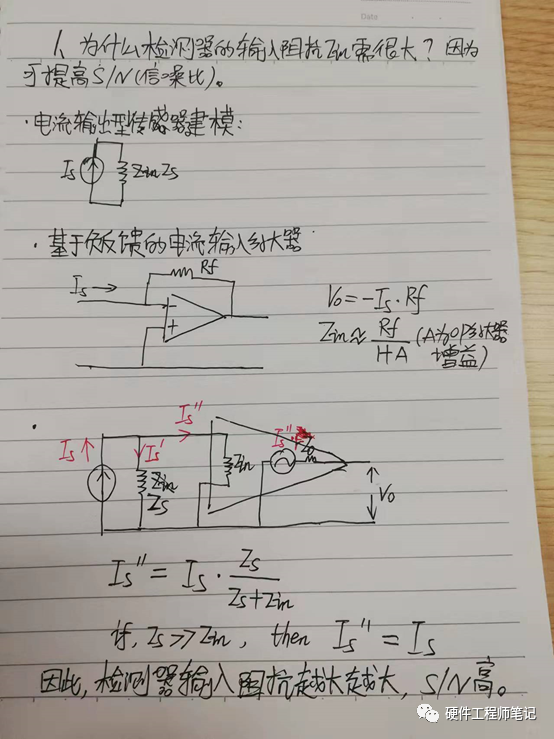 Date
1、为什么检测器的输入阻抗Zin需很大？因为
可提高S/N(信噪比)。
·电流输出型传感器建模：
Is Zs
·基于负反馈的电流输入放大器
Is → Rf
- +
Vo=-Is·Rf
Zin≈ Rf/(1+A) (A为OP放大器
增益)
Is" Is"
Is Is' Zin Zo
Zs Vo
Is" = Is · Zs/(Zs+Zin)
if, Zs>>Zin, then Is" = Is
因此,检测器输入阻抗越大越大, S/N高。
硬件工程师笔记